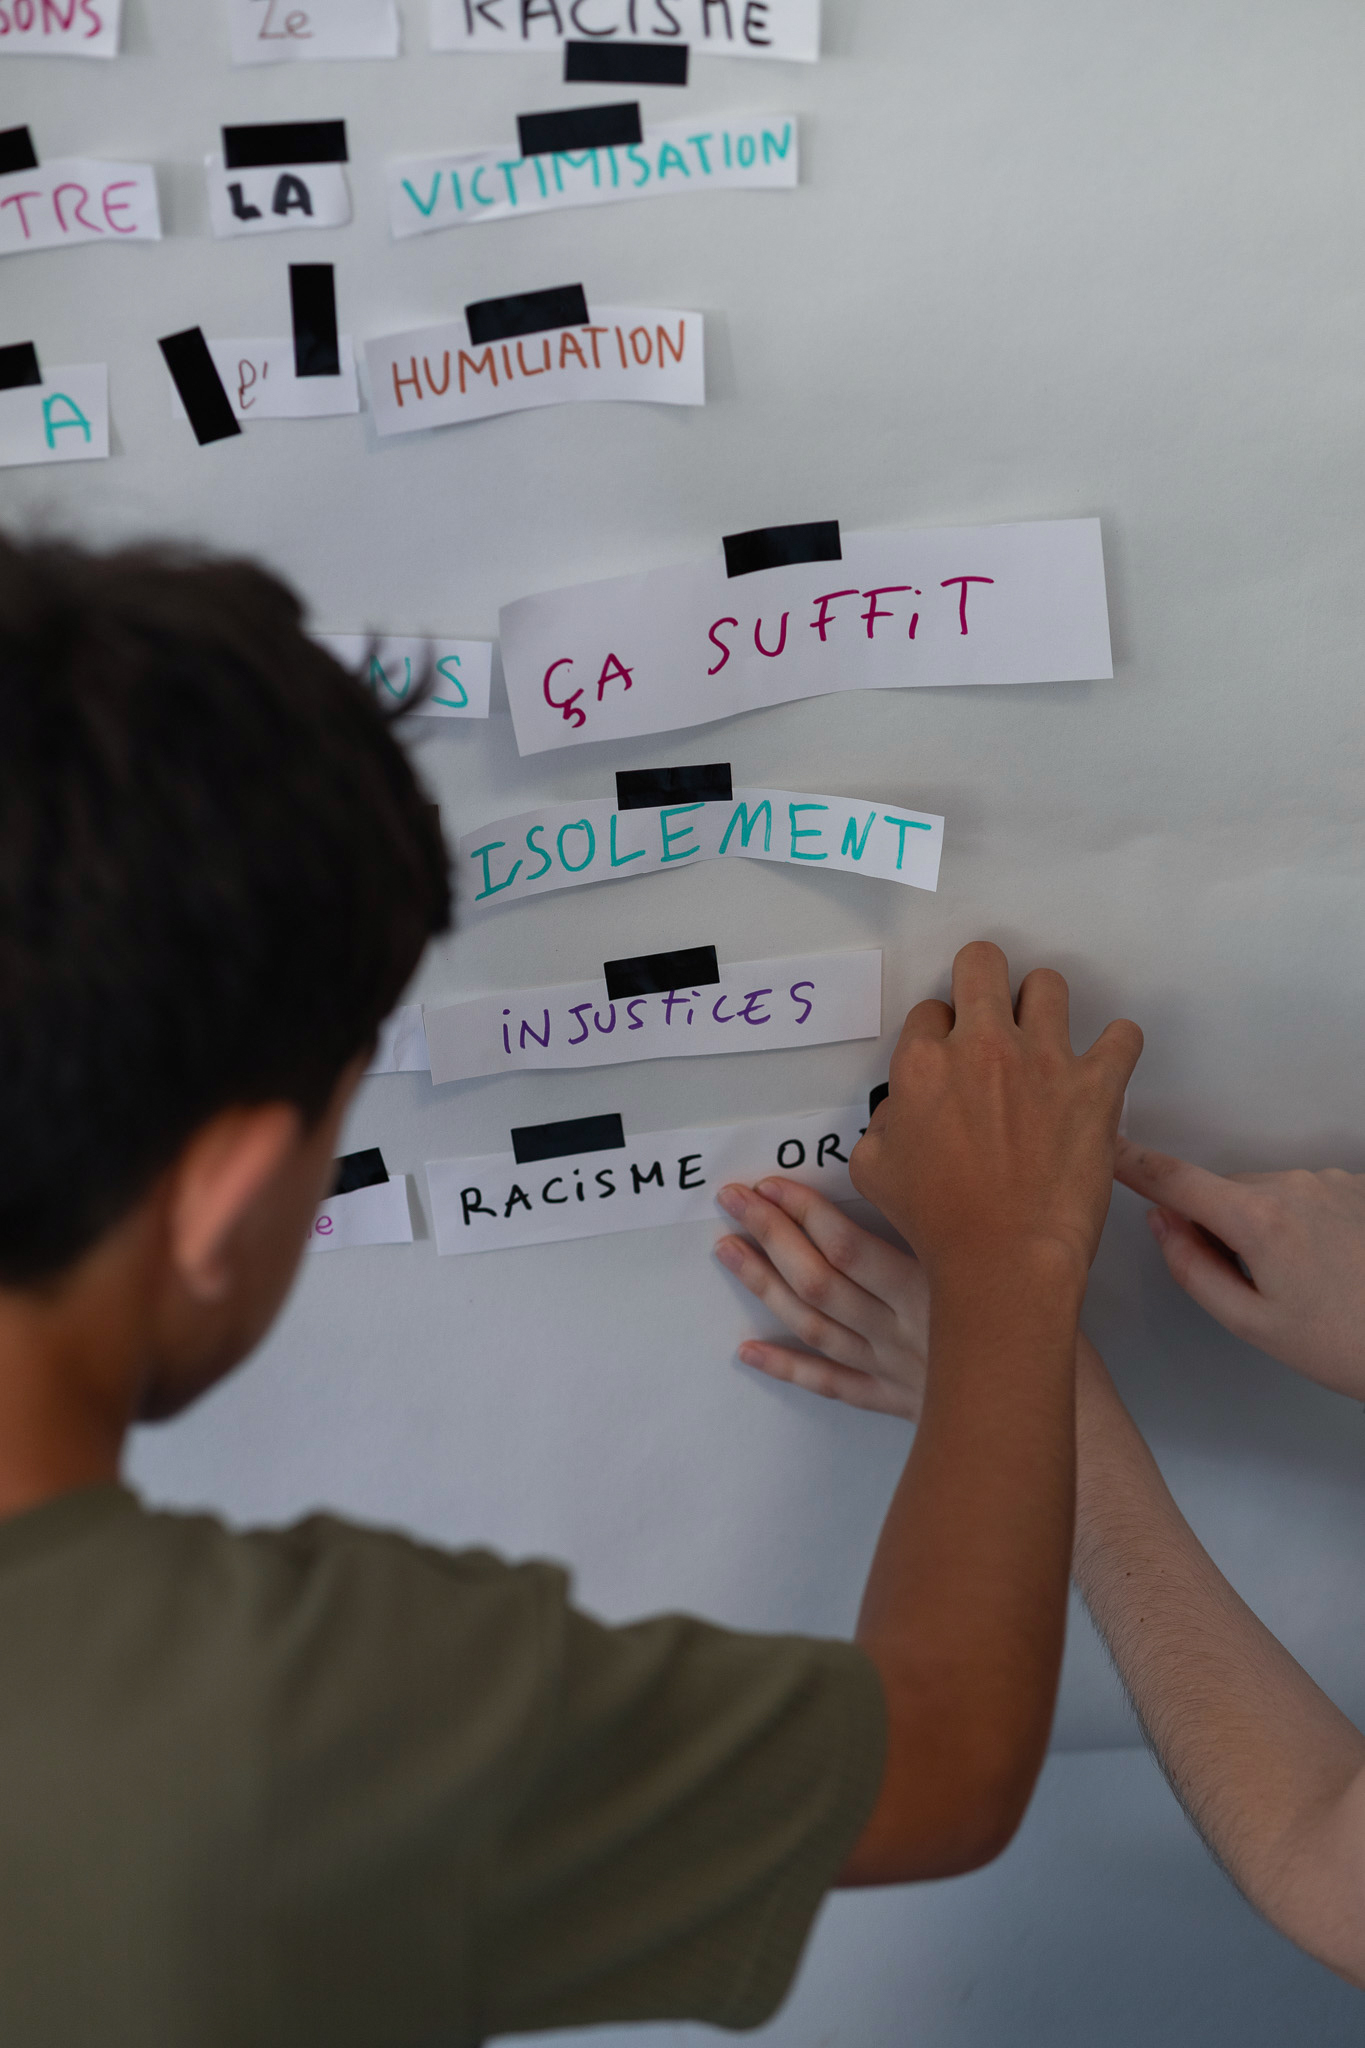 SONS Ze RACISME
TRE LA VICTIMISATION
A l' HUMILIATION
NS ÇA SUFFiT
ISOLEMENT
iNJUSTiCES
e RACiSME OR